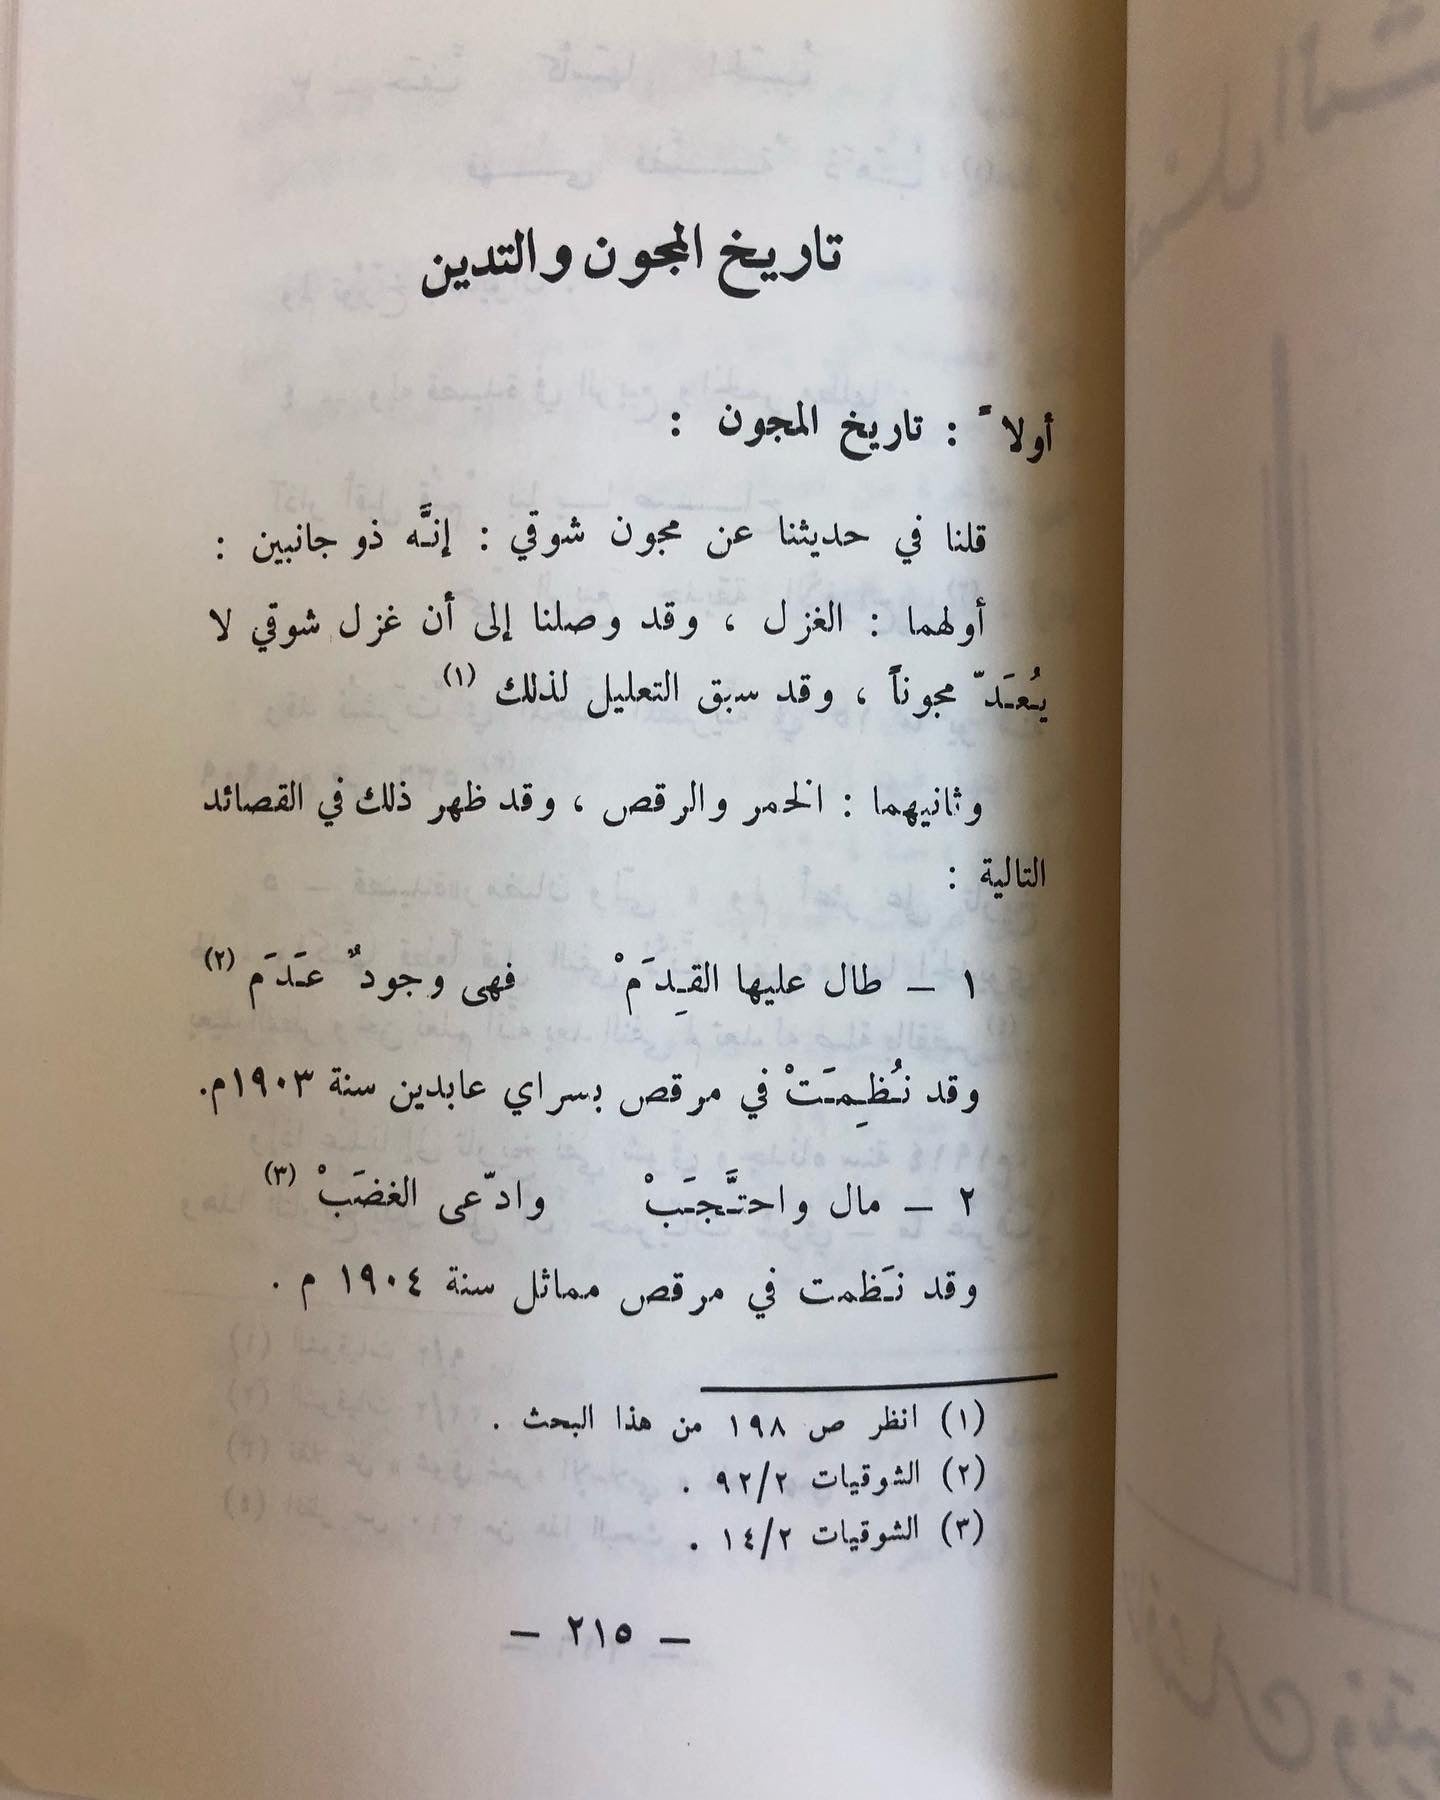 تاريخ المجون والتدين
أولاً : تاريخ المجون :
قلنا في حديثنا عن مجون شوقي : إنَّه ذو جانبين :
أولهما : الغزل ، وقد وصلنا إلى أن غزل شوقي لا
يُعَدّ مجوناً ، وقد سبق التعليل لذلك (١)
وثانيهما : الخمر والرقص ، وقد ظهر ذلك في القصائد
التالية :
١ – طال عليها القِدَمْ فهى وجودٌ عَدَم (٢)
وقد نُظِمَتْ في مرقص بسراي عابدين سنة ١٩٠٣م.
٢ – مال واحتَّجَبْ وادّعى الغضَبْ (٣)
وقد نَظمت في مرقص مماثل سنة ١٩٠٤ م .
(١) انظر ص ١٩٨ من هذا البحث .
(٢) الشوقيات ٩٢/٢ .
(٣) الشوقيات ١٤/٢ .
– ٢١٥ –